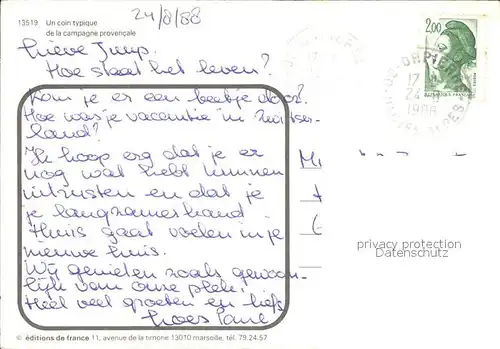 24/8/88
13519 Un coin typique
de la campagne provençale
Lieve Juup.
Hoe staat het leven?
Kom je er een beetje door?
Hoe was je vacantie in Zwitser-
land?
Ik hoop erg dat je er
nog wat hebt kunnen
uitrusten en dat je
je langzamerhand
thuis gaat voelen in je
nieuwe huis.
Wij genieten zoals gewoon-
lijk van onze plek.
Heel veel groeten en liefs
2,00
17
24-8
1988
privacy protection
Datenschutz
© éditions de france 11, avenue de la timone 13010 marseille, tél. 79.24.57